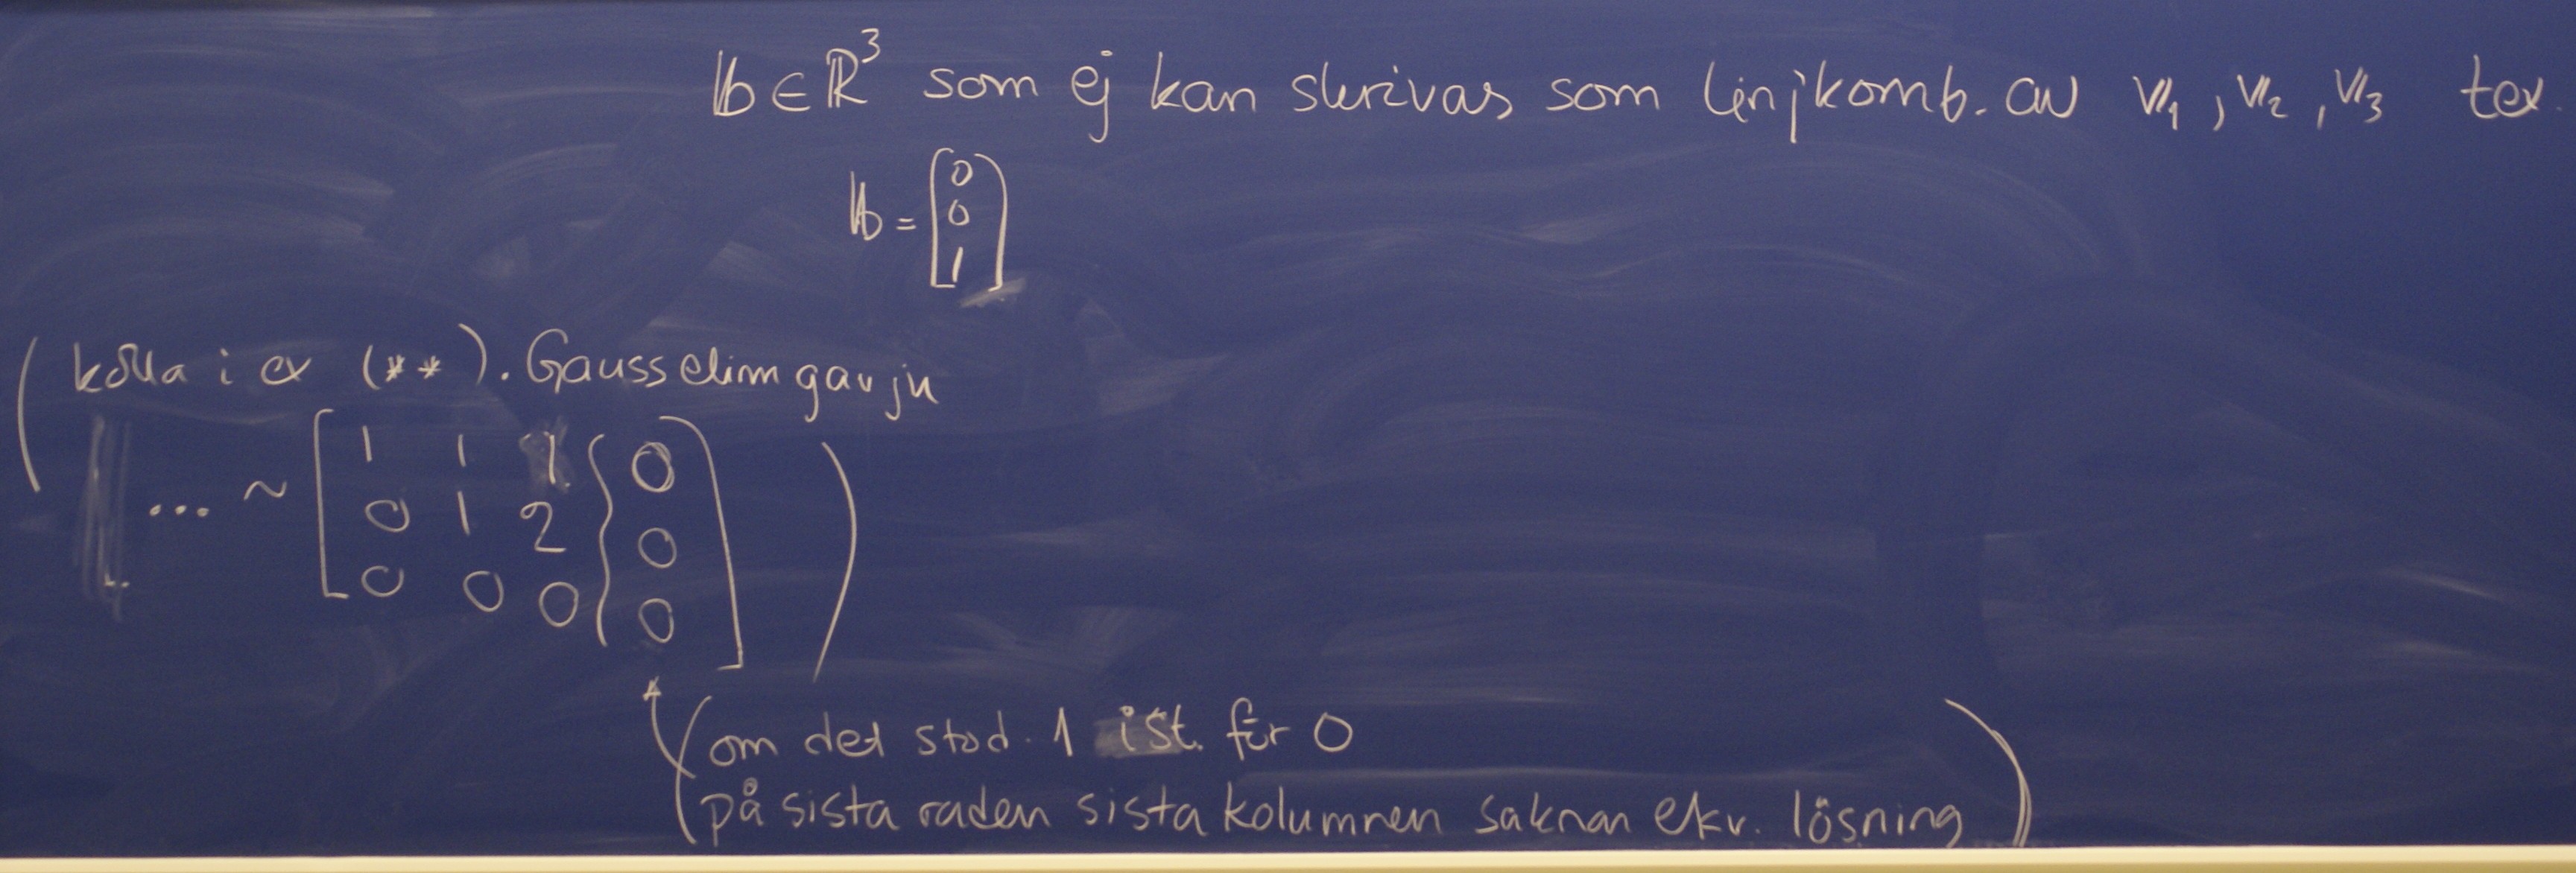 b ∈ ℝ³ som ej kan skrivas som linjkomb. av v₁, v₂, v₃ tex.
b = [0 0 1]
(kolla i ex (**). Gausselim gav ju
... ~ [1 1 1 | 0
0 1 2 | 0
0 0 0 | 0] )
(om det stod 1 ist. för 0
på sista raden sista kolumnen saknar ekv. lösning)